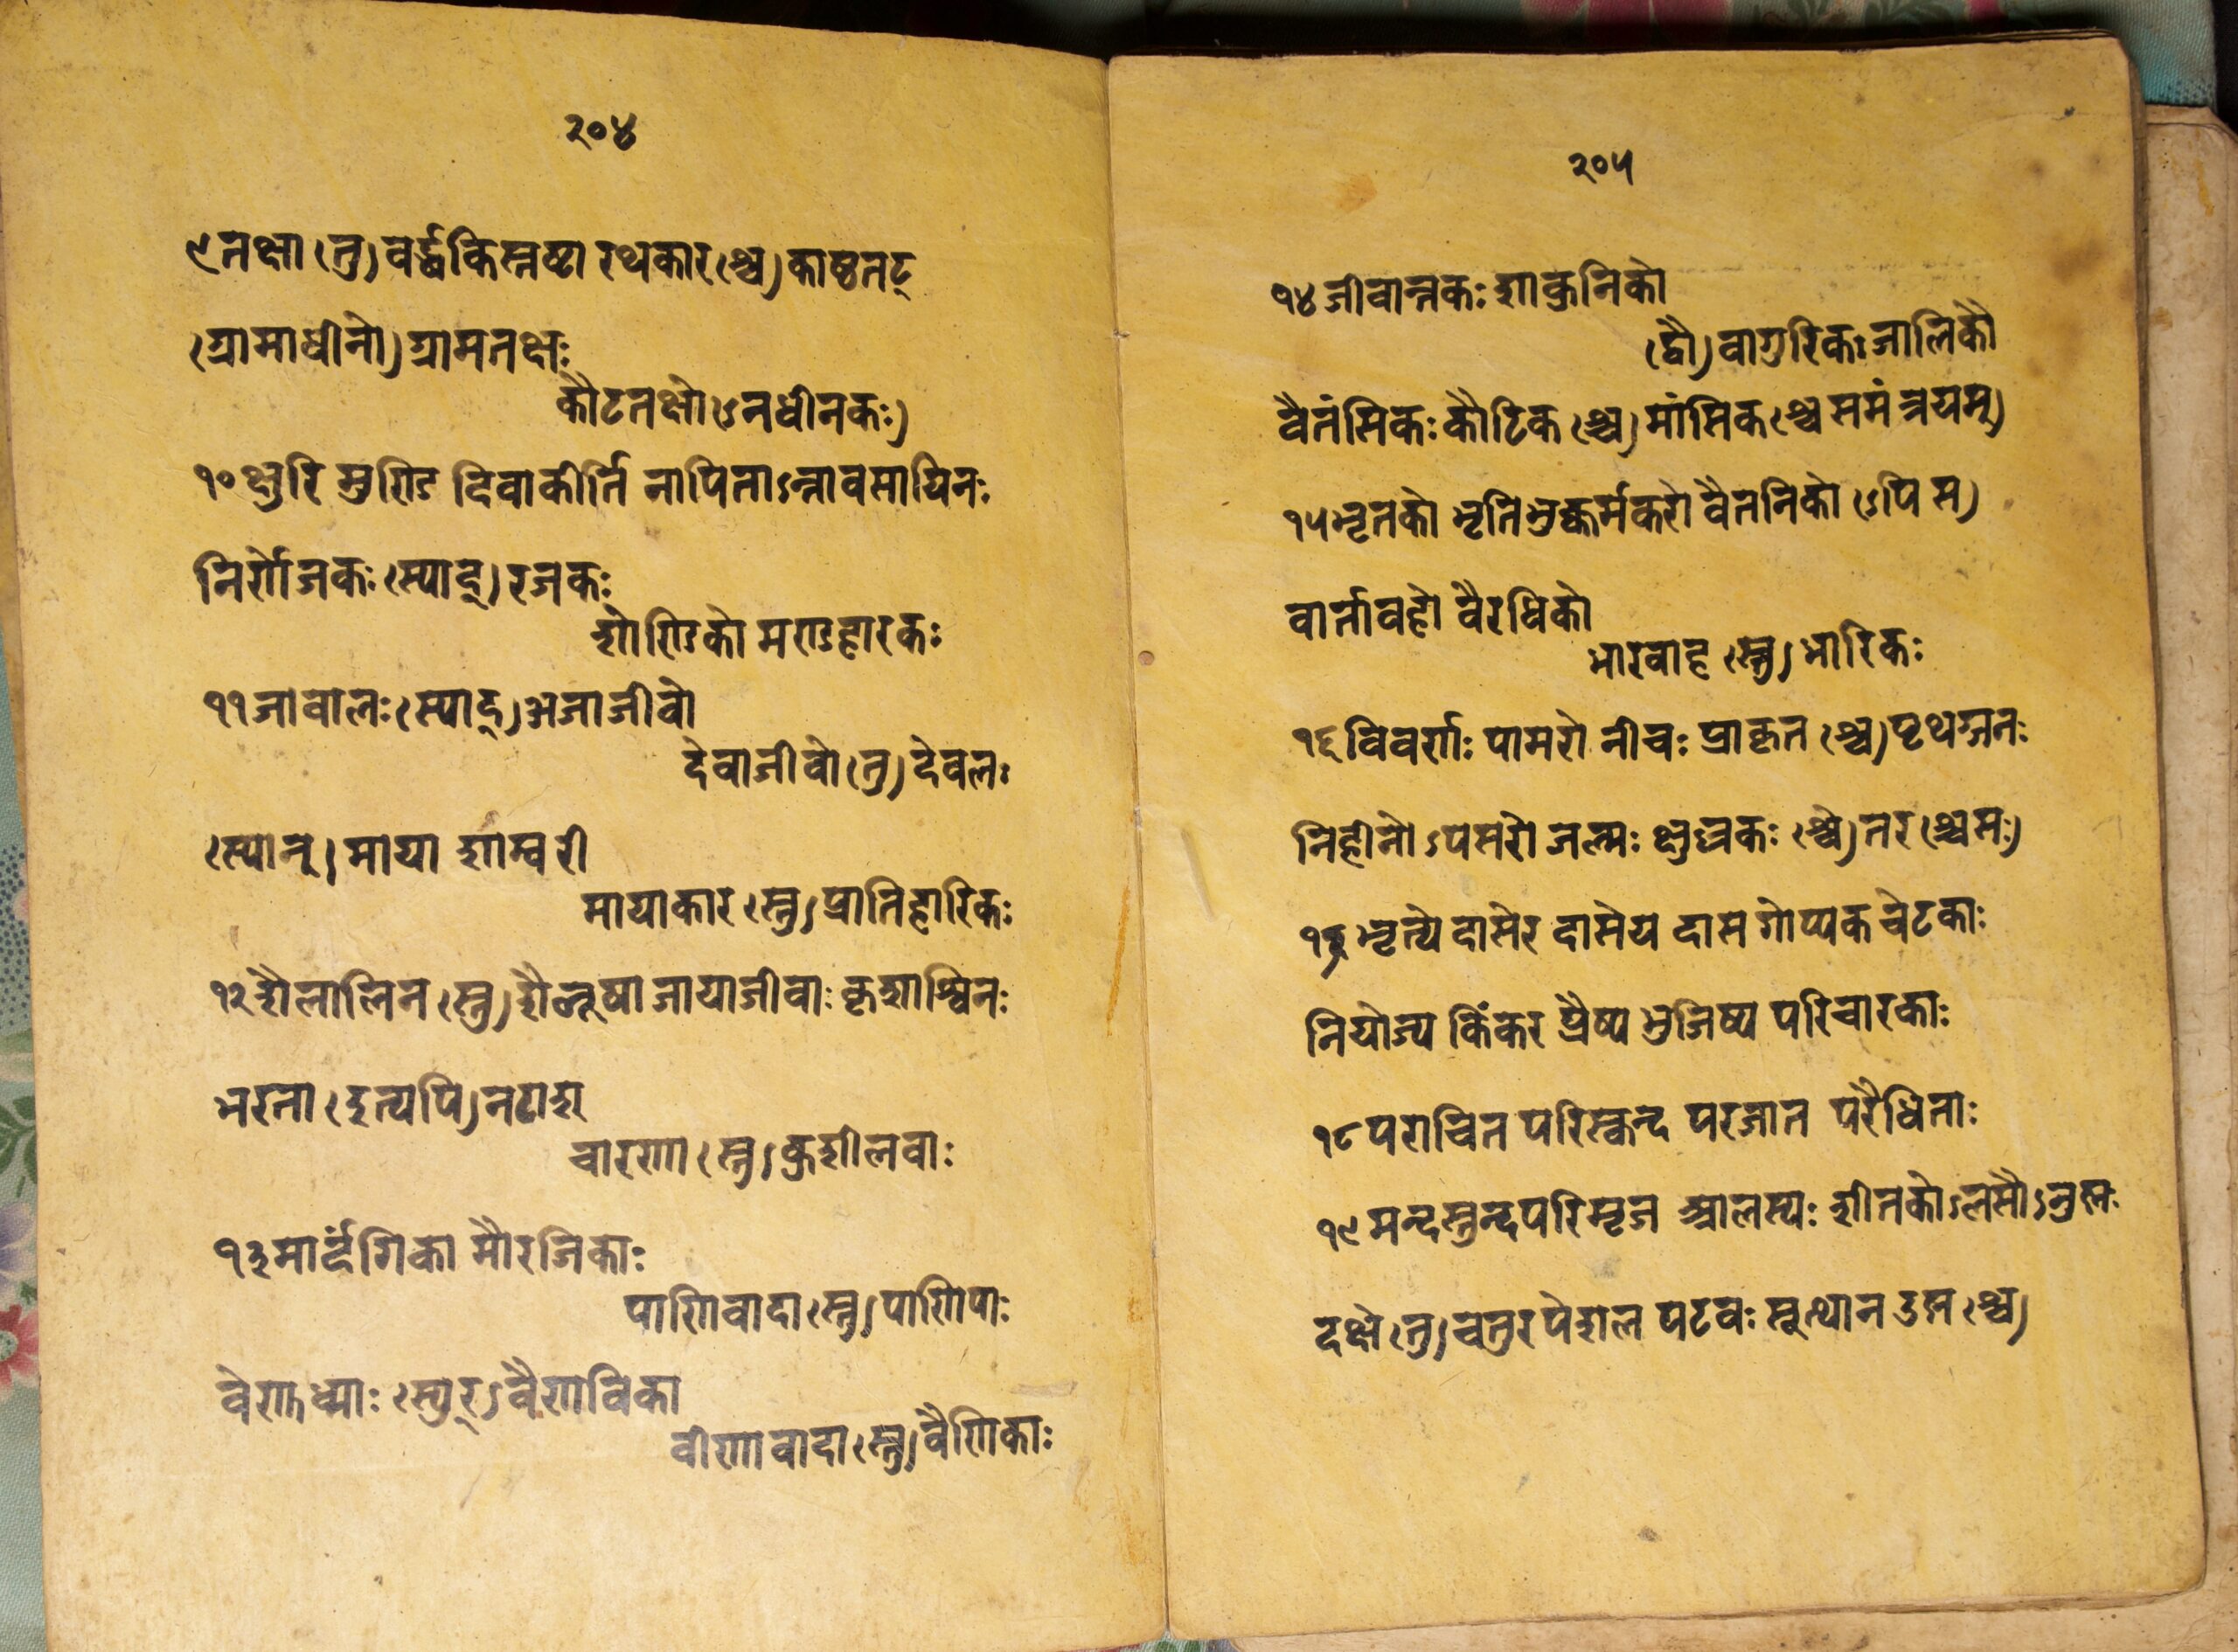 २०४
९तक्षा (तु) वर्द्धकिस्त्वष्टा रथकार (श्च) काष्ठतट्
(ग्रामाधीनो) ग्रामतक्षः
कौटतक्षोऽनधीनकः)
१०क्षुरि मुण्डि दिवाकीर्ति नापिताऽन्तावसायिनः
निर्णेजकः (स्याद्) रजकः
शौण्डिको मण्डहारकः
११जावालः (स्याद्) अजाजीवो
देवाजीवो (तु) देवलः
(स्यात्) माया शाम्बरी
मायाकार (स्तु) प्रातिहारिकः
१२शैलालिन (स्तु) शैलूषा जायाजीवाः कृशाश्विनः
भरता (इत्यपि) नटाश
चारणा (स्तु) कुशीलवाः
१३मार्दंगिका मौरजिकाः
पाणिवादा (स्तु) पाणिघाः
वेणुध्माः (स्युर्) वैणविका
वीणावादा (स्तु) वैणिकाः
२०५
१४जीवान्तकः शाकुनिको
(द्वौ) वागुरिकः जालिकौ
वैतंसिकः कौटिक (श्च) मांसिक (श्च समं त्रयम्)
१५भृतको भृतिभुक्कर्मकरो वैतनिको (ऽपि स)
वार्तावहो वैवधिको
भारवाह (स्तु) भारिकः
१६विवर्णः पामरो नीचः प्राकृत (श्च) पृथग्जनः
निहीनोऽपसरो जल्मः क्षुल्लकः (श्चे) तर (श्चसः)
१७भृत्ये दासेर दासेय दास गोप्यक चेटकाः
नियोज्य किंकर प्रैष्य भुजिष्य परिचारकाः
१८पराचित परिस्कन्द परजात परैधिताः
१९मन्दस्तुन्दपरिमृज आलस्यः शीतकोऽलसौऽनुष्णः
दक्षे (तु) चतुर पेशल पटवः सूत्थान उष्ण (श्च)